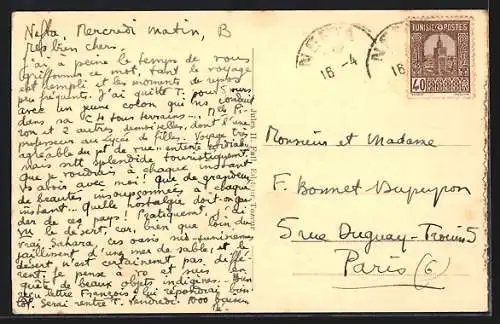 Nefta, Mercredi matin,
bien chers,
J'ai à peine le temps de vous
griffonner ce mot, tant le voyage
est rempli et les moments de repos
peu fréquents. J'ai quitté T. pour 5 jours
avec un jeune colon qui nous conduit
dans sa C4 tous terrains
et 2 autres demoiselles, dont l'une
professeur au Lycée de filles. Voyage très
agréable au pt de vue "entente cordiale"
mais splendide touristiquement.
Que je voudrais à chaque instant
vs avoir avec moi! que de grandeur
de beautés insoupçonnées à chaque
instant. Quelle nostalgie doit-on
der de ces pays! Pratiquement, j'ai
vu le désert, car, bien que loin du
vrai Sahara, ces oasis
jaillissent d'une mer de sable, et le
désert n'est certainement pas diffé-
rent. Je pense à vs et suis en
quête de beaux objets indigènes. Bien
reçu lettre François, lui répondrai bien-
tôt. Serai rentré T. Vendredi. 1000 baisers
NEFTA
16-4
16
TUNISIE POSTES
40
Monsieur et Madame
F. Bonnet Dupeyron
5 rue Duguay-Trouin 5
Paris (6)